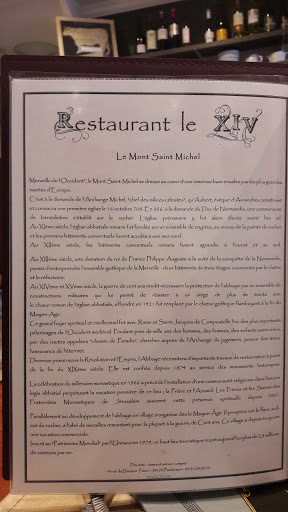 Restaurant le XIV
Le Mont Saint Michel
Merveille de l'Occident", le Mont Saint-Michel se dresse au cœur d'une immense baie envahie par les plus grandes
marées d'Europe.
C'est à la demande de l'Archange Michel, "chef des milices célestes", qu'Aubert, évêque d'Avranches construisit
et consacra une première église le 16 octobre 709. En 966, à la demande du Duc de Normandie, une communauté
de bénédictins s'établit sur le rocher. L'église préromane y fut alors élevée avant l'an mil.
Au XIème siècle, l'église abbatiale romane fut fondée sur un ensemble de cryptes, au niveau de la pointe du rocher
et les premiers bâtiments conventuels furent accolés à son mur nord.
Au XIIème siècle, les bâtiments conventuels romans furent agrandis à l'ouest et au sud.
Au XIIIème siècle, une donation du roi de France Philippe Auguste à la suite de la conquête de la Normandie,
permit d'entreprendre l'ensemble gothique de la Merveille : deux bâtiments de trois étages couronnés par le cloître
et le réfectoire.
Au XIVème et XVème siècles, la guerre de cent ans rendit nécessaire la protection de l'abbaye par un ensemble de
constructions militaires qui lui permit de résister à un siège de plus de trente ans.
le chœur roman de l'église abbatiale, effondré en 1421 fut remplacé par le chœur gothique flamboyant à la fin du
Moyen-Age.
Ce grand foyer spirituel et intellectuel fut avec Rome et Saint-Jacques de Compostelle l'un des plus importants
pèlerinages de l'Occident médiéval. Pendant près de mille ans des hommes, des femmes, des enfants sont venus,
par des routes appelées "chemins de Paradis", chercher auprès de l'Archange du jugement, peseur des âmes,
l'assurance de l'éternité.
Devenue prison sous la Révolution et l'Empire, l'Abbaye nécessitera d'importants travaux de restauration à partir
de la fin du XIXème siècle. Elle est confiée depuis 1874 au service des monuments historiques.
La célébration du millénaire monastique en 1966 a précédé l'installation d'une communauté religieuse dans l'ancien
logis abbatial perpétuant la vocation première de ce lieu : la Prière et l'Accueil. Les Frères et les Sœurs des
Fraternités Monastiques de Jérusalem assurent cette présence spirituelle depuis 2001.
Parallèlement au développement de l'abbaye un village s'organise dès le Moyen-Age. Il prospère sur le flanc sud-est
du rocher, à l'abri de murailles remontant pour la plupart à la guerre de Cent ans. Ce village a depuis toujours
une vocation commerciale.
Inscrit au "Patrimoine Mondial" par l'Unesco en 1979, ce haut lieu du tourisme reçoit aujourd'hui plus de
de visiteurs par an.